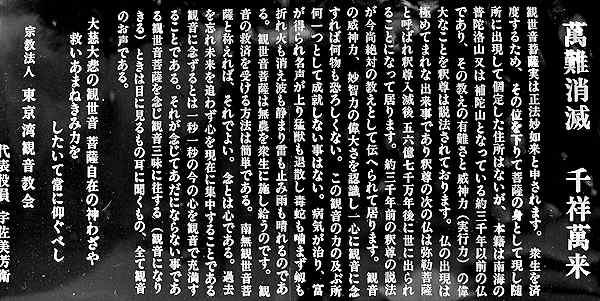 萬難消滅　千祥萬来
観世音菩薩実は正法妙如来と申されます。　衆生を済
度するため、その位を下りて菩薩の身として現し随
所に出現して個定した住所はないが、本籍は南海の
普陀洛山又は補陀山となっている約三千年以前の仏
であり、その教えの有難さと威神力（実行力）の偉
大なことを釈尊は説法されております。　仏の出現は
極めてまれな出来事であり釈尊の次の仏は弥勒菩薩
と呼ばれ釈尊入滅後五六億七千万年後に世に出られ
ることになって居ります。約三千年前の釈尊の説法
が今尚絶対の教えとして伝へられて居ります。　観音
の威神力、妙智力の偉大さを認識し一心に観音に念
すれば何物も恐ろしくない。この観音の力の及ぶ所
何一つとして成就しない事はない。病気が治り、富
が得られ名声が上り猛獣も退散し毒蛇も噛まず剣も
折れ火も消え波も静まり雷も止み雨も晴れるのであ
る。観世音菩薩は無畏を衆生に施し給うのです。　観
音の救済を受ける方法は簡単である。南無観世音菩
薩と称えれば、それでよい。念とは心である。　過去
を忘れ未来を追わず心を現在に集中することである
観音に念ずるとは一秒一秒の今の心を観音で充満す
ることである。それが念じてあだにならない事であ
る観世音菩薩を念じ観音三昧に住する（観音になり
きる）ときは目に見るもの耳に聞くもの、全て観音
のお声である。
大慈大悲の観世音　菩薩自在の神わざや
救いあまねきみ力を
したいて常に仰ぐべし
宗教法人　東京湾観音教会
代表役員　宇佐美芳衛